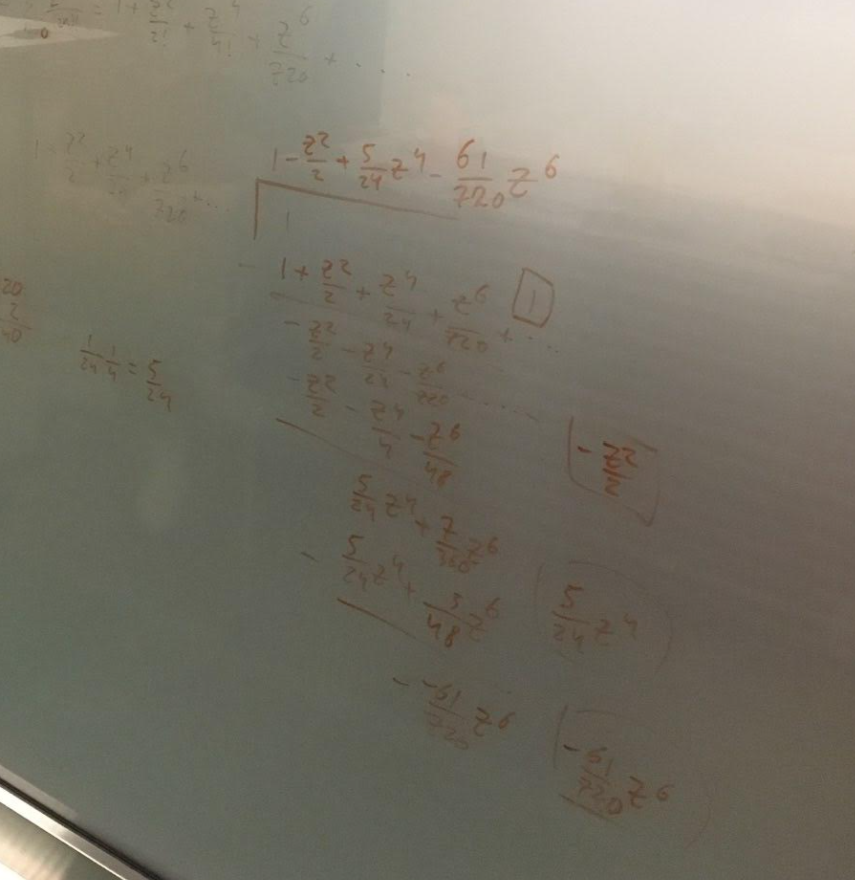 1 + z²/2! + z⁴/4! + z⁶/720 + ....
1 z²/2 + z⁴/ + z⁶/720 + ...
1 - z²/2 + 5/24 z⁴ - 61/720 z⁶
1
- 1 + z²/2 + z⁴/24 + z⁶/720 + ... 1
- z²/2 - z⁴/24 - z⁶/720 .....
1/24 1/4 = 5/24
- z²/2 - z⁴/4 - z⁶/48
- z²/2
5/24 z⁴ + 7/360 z⁶
- 5/24 z⁴ + 5/48 z⁶
5/24 z⁴
- -61/720 z⁶
-61/720 z⁶